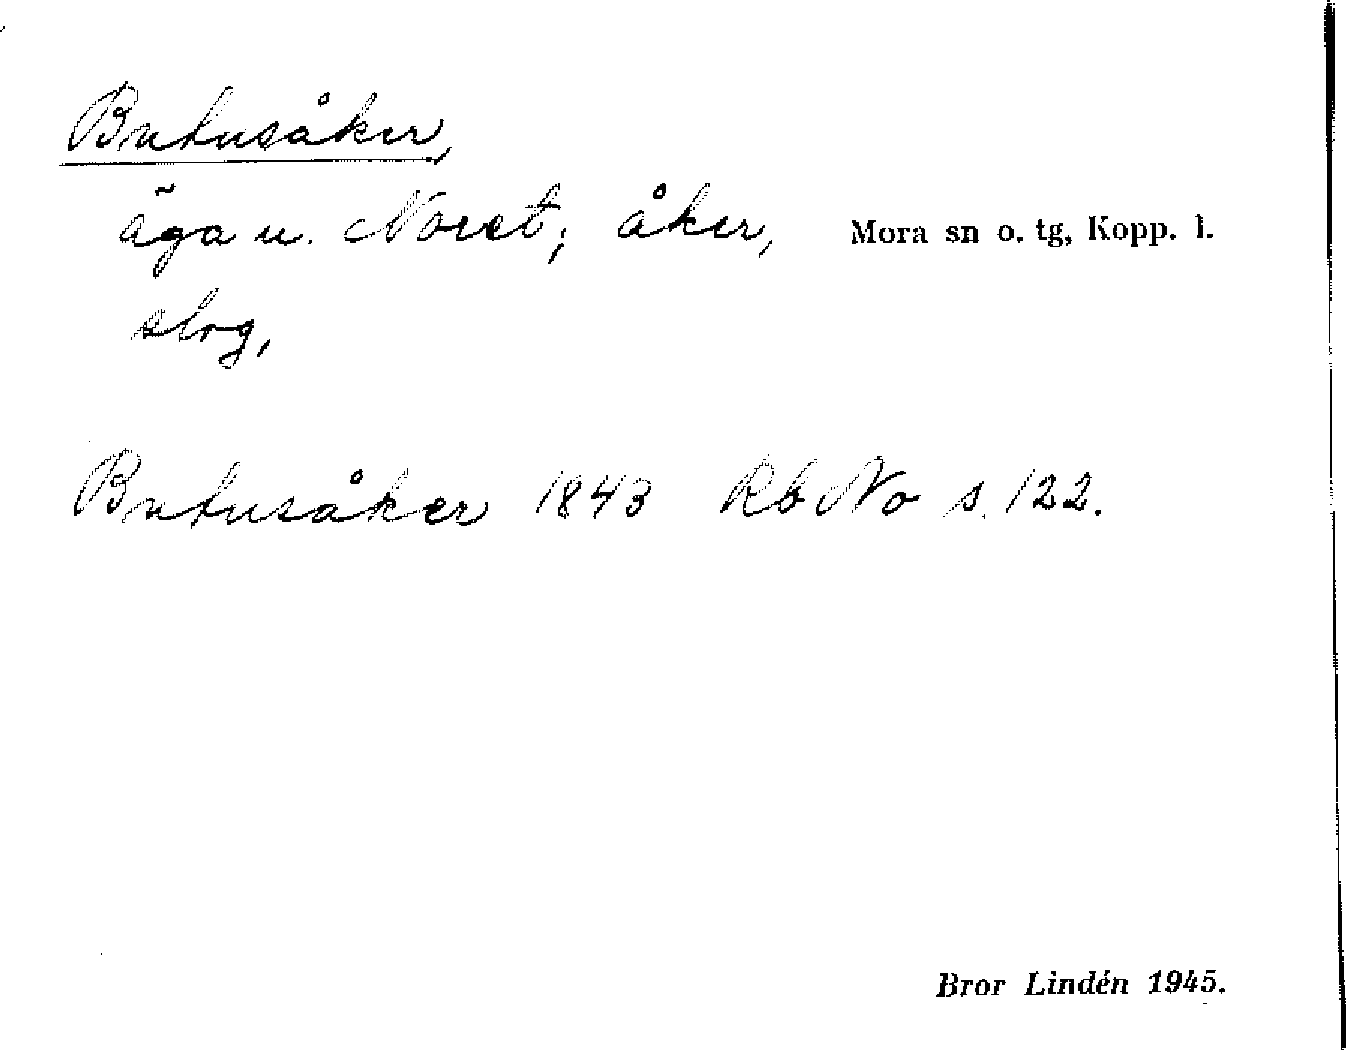 Butusåker,
äga u. Noret; åker, Mora sn o. tg, Kopp. l.
slog,
Butusåker 1843 Rb No s. 122.
Bror Lindén 1945.